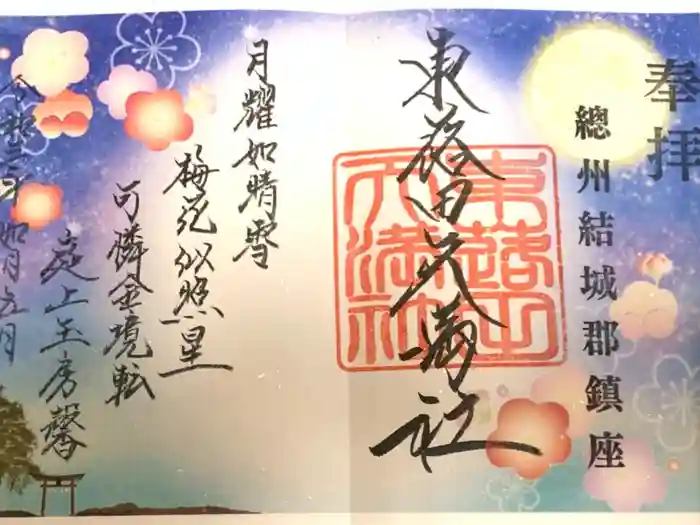 奉拝
總州結城郡鎮座
東蕗田天満社
東蕗田
天満社
月耀如晴雪
梅花似照星
可憐金鏡転
庭上玉房馨
令和三年如月